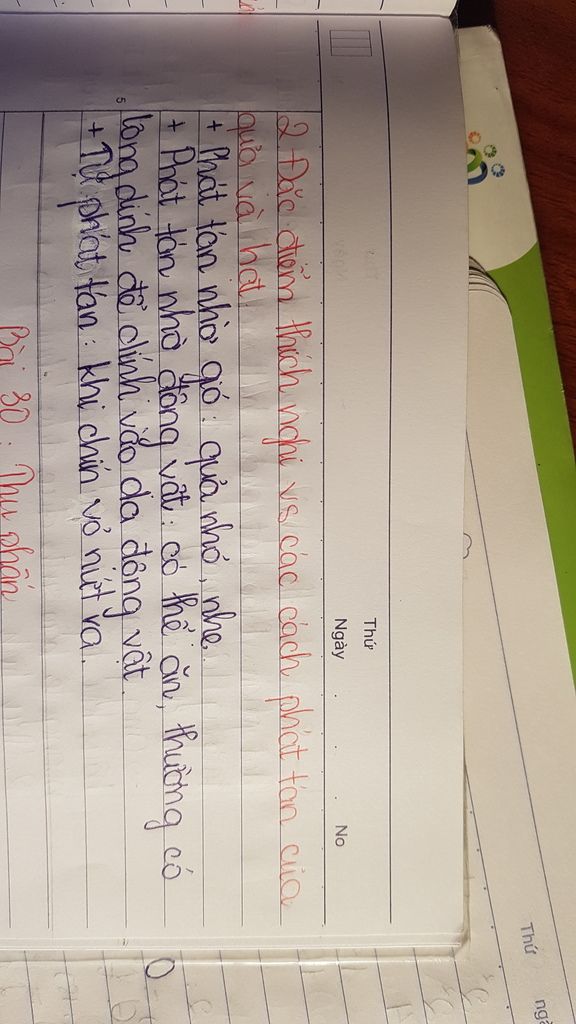 Thứ
Ngày . . . No
2. Đặc điểm thích nghi vs các cách phát tán của
quả và hạt
+ Phát tán nhờ gió: quả nhỏ, nhẹ
+ Phát tán nhờ động vật: có thể ăn, thường có
lông dính để dính vào da động vật.
+ Tự phát tán: khi chín vỏ nứt ra.
5
Bài 30: Thụ phấn
Thứ